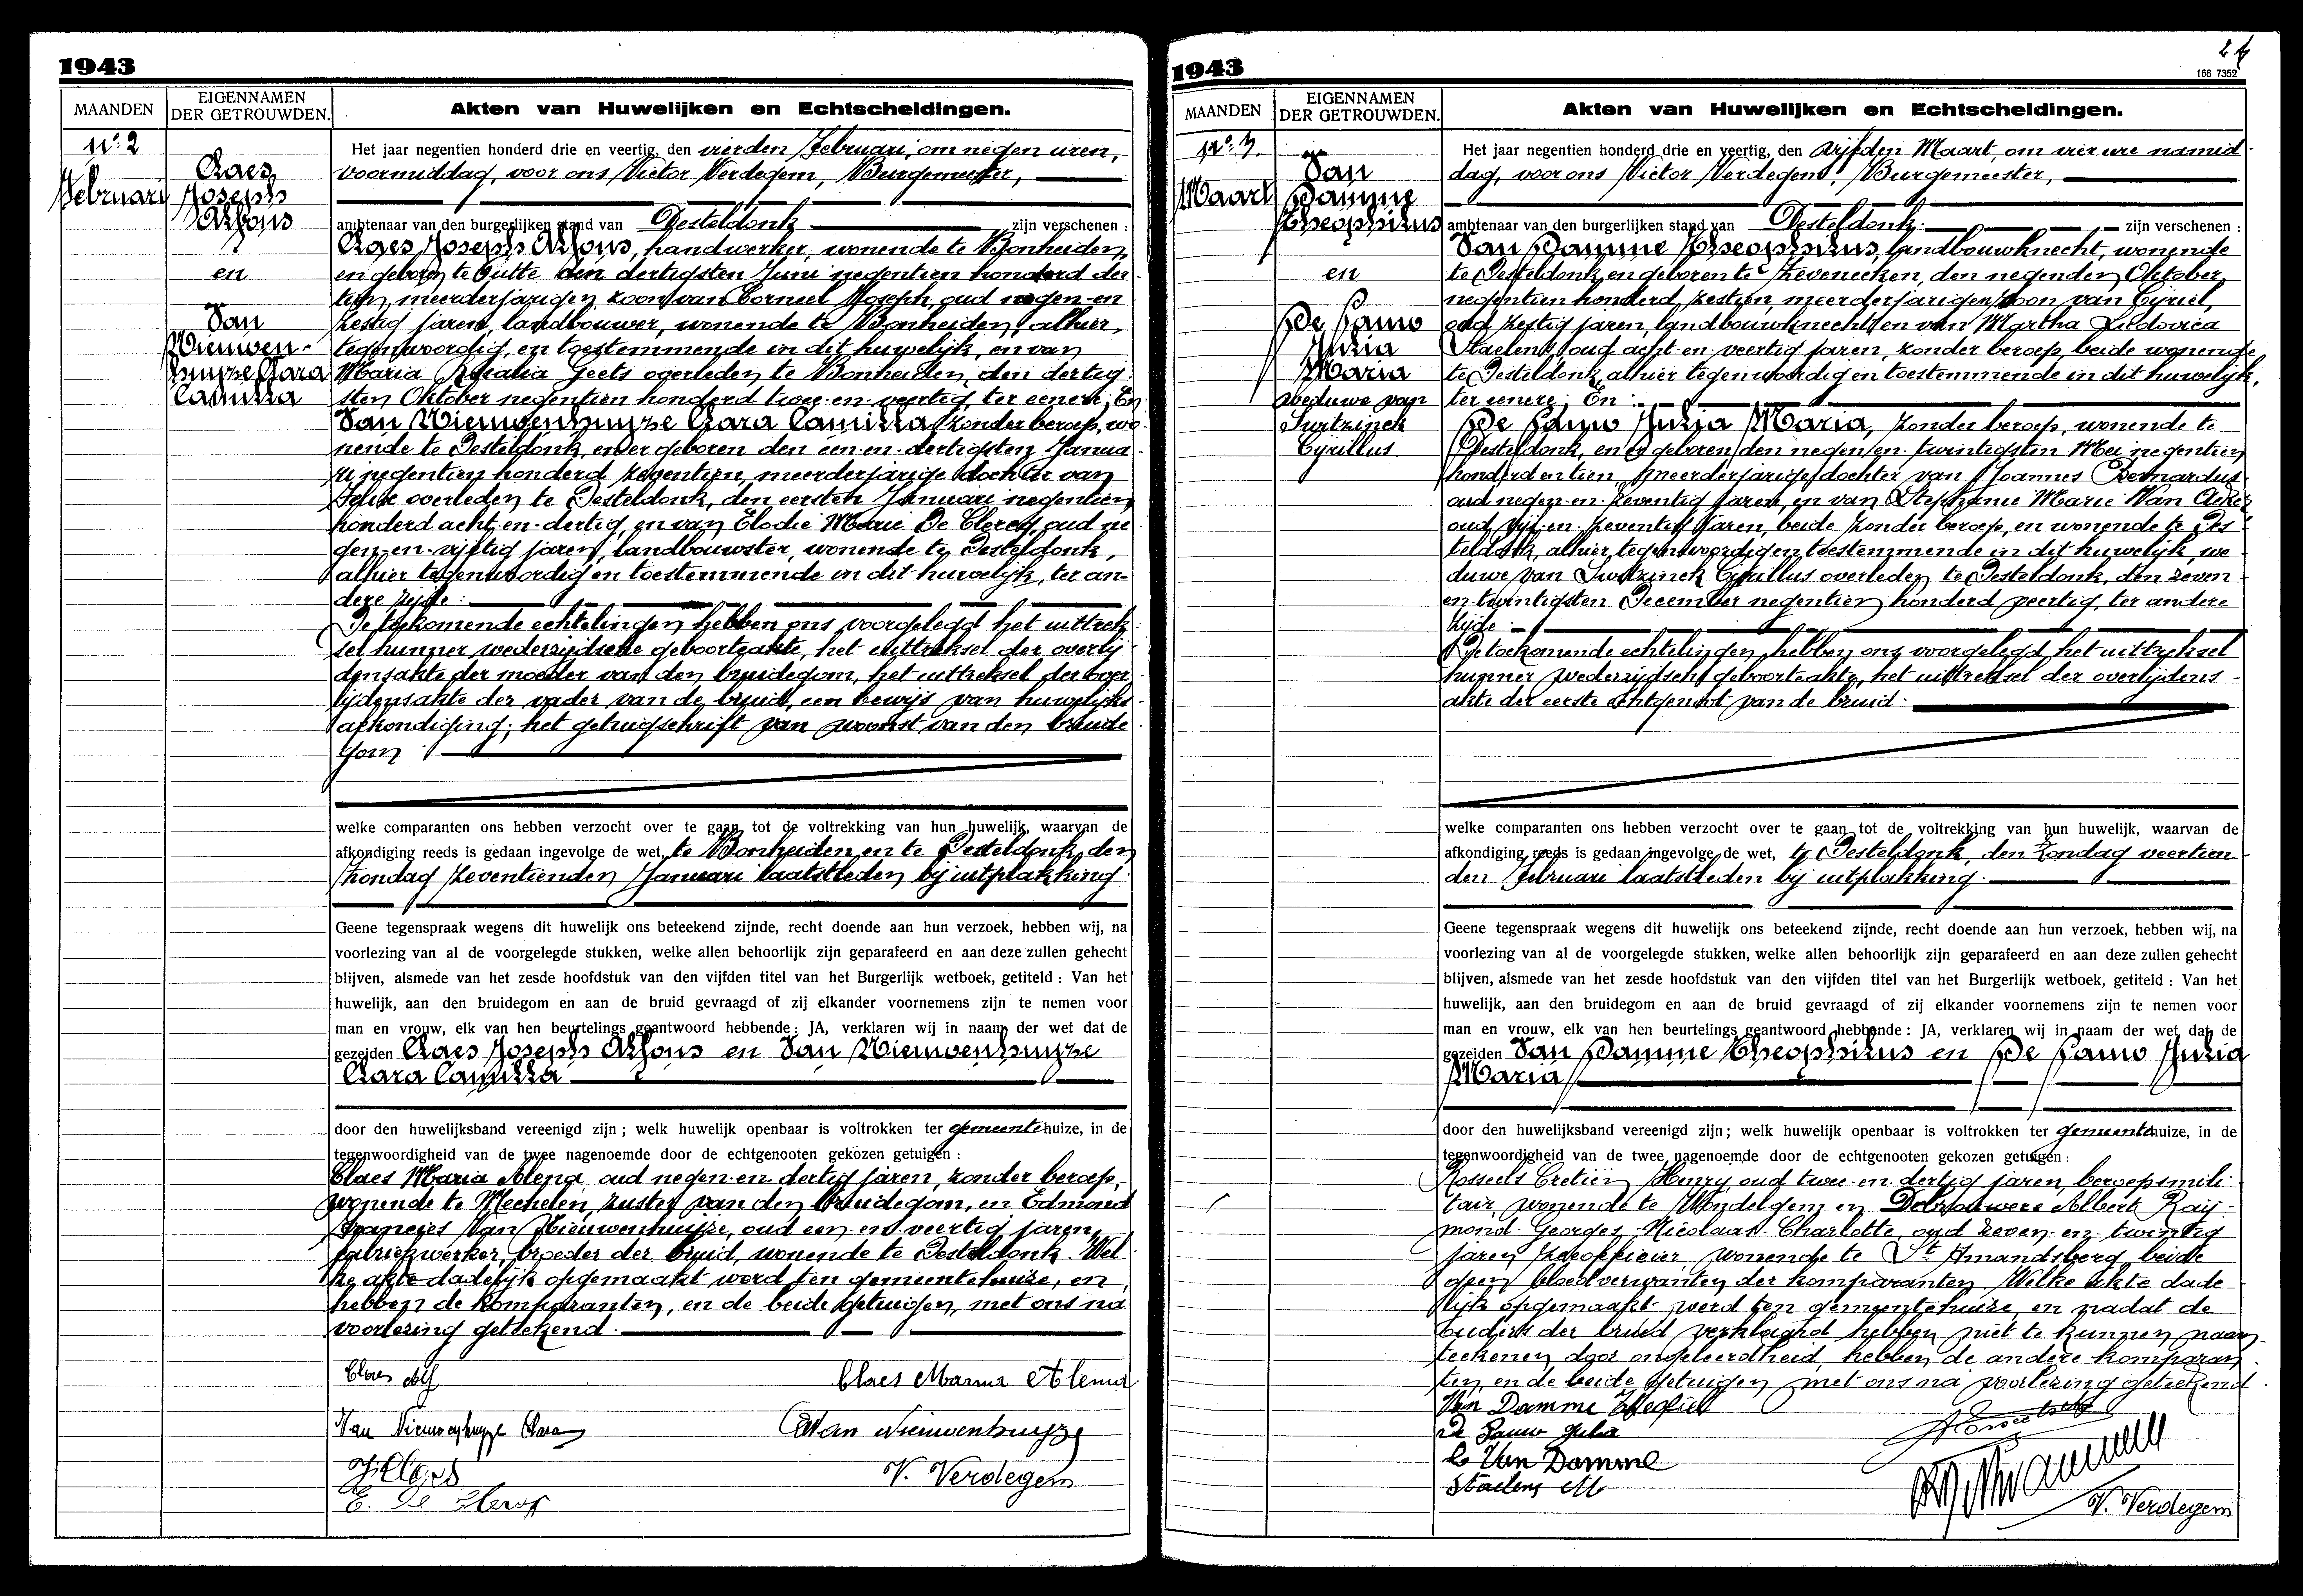 1943
MAANDEN
EIGENNAMEN
DER GETROUWDEN.
Akten van Huwelijken en Echtscheidingen.
n° 2
Februari
Claes
Joseph
Alfons
en
Van
Nieuwen-
huyze Clara
Camilla
Het jaar negentien honderd drie en veertig, den vierden Februari, om negen uren,
voormiddag, voor ons Victor Verdegem, Burgemeester,
ambtenaar van den burgerlijken stand van Desteldonk zijn verschenen :
Claes Joseph Alfons, handwerker, wonende te Bonheiden,
en geboren te Putte den dertigsten Juni negentien honderd der-
tien, meerderjarigen zoon van Corneel Joseph oud negen-en
zestig jaren, landbouwer, wonende te Bonheiden, alhier
tegenwoordig, en toestemmende in dit huwelijk, en van
Maria Rosalia Geets overleden te Bonheiden, den dertig-
sten Oktober negentien honderd twee-en-veertig, ter eenere; En
Van Nieuwenhuyze Clara Camilla, zonder beroep, wo-
nende te Desteldonk, en er geboren den een-en-dertigsten Janua-
ri negentien honderd zeventien, meerderjarige dochter van
overleden te Desteldonk, den eersten Januari negentien
honderd acht-en-dertig, en van Elodie Marie De Clercq, oud ne-
gen-en-vijftig jaren, landbouwster, wonende te Desteldonk,
alhier tegenwoordig en toestemmende in dit huwelijk, ter an-
dere zijde :
De toekomende echtelingen hebben ons voorgelegd het uittrek-
sel hunner wederzijdsche geboorteakte, het uittreksel der overlij-
densakte der moeder van den bruidegom, het uittreksel der over-
lijdensakte der vader van de bruid, een bewijs van huwelijks-
afkondiging; het getuigschrift van woonst van den bruide-
gom
welke comparanten ons hebben verzocht over te gaan tot de voltrekking van hun huwelijk, waarvan de
afkondiging reeds is gedaan ingevolge de wet, te Bonheiden en te Desteldonk, den
zondag zeventienden Januari laatstleden bij uitplakking.
Geene tegenspraak wegens dit huwelijk ons beteekend zijnde, recht doende aan hun verzoek, hebben wij, na
voorlezing van al de voorgelegde stukken, welke allen behoorlijk zijn geparafeerd en aan deze zullen gehecht
blijven, alsmede van het zesde hoofdstuk van den vijfden titel van het Burgerlijk wetboek, getiteld : Van het
huwelijk, aan den bruidegom en aan de bruid gevraagd of zij elkander voornemens zijn te nemen voor
man en vrouw, elk van hen beurtelings geantwoord hebbende : JA, verklaren wij in naam der wet dat de
gezeiden Claes Joseph Alfons en Van Nieuwenhuyze
Clara Camilla
door den huwelijksband vereenigd zijn ; welk huwelijk openbaar is voltrokken ter gemeentehuize, in de
tegenwoordigheid van de twee nagenoemde door de echtgenooten gekozen getuigen :
Claes Maria Alena oud negen-en-dertig jaren, zonder beroep,
wonende te Mechelen, zuster van den bruidegom, en Edmond
Francies Van Nieuwenhuijze, oud een-en-veertig jaren,
fabriekwerker, broeder der bruid, wonende te Desteldonk. Wel-
ke akte dadelijk opgemaakt werd ten gemeentehuize, en
hebben de komparanten, en de beide getuigen, met ons na
voorlezing geteekend.
Claes Alf
Claes Maria Alena
Van Nieuwenhuyze Clara
E Van Nieuwenhuyze
J. Claes
V. Verdegem
E. De Clercq
1943
24
168 7352
MAANDEN
EIGENNAMEN
DER GETROUWDEN.
Akten van Huwelijken en Echtscheidingen.
n° 3.
Maart
Van
Damme
Theophilus
en
De Pauw
Julia
Maria
weduwe van
Switzinck
Cyrillus
Het jaar negentien honderd drie en veertig, den vijfden Maart, om vier ure namid-
dag, voor ons Victor Verdegem, Burgemeester,
ambtenaar van den burgerlijken stand van Desteldonk zijn verschenen :
Van Damme Theophilus, landbouwknecht, wonende
te Desteldonk, en geboren te Zeveneeken, den negenden Oktober,
negentien honderd zestien, meerderjarigen zoon van Cyriel,
oud zestig jaren, landbouwknecht, en van Martha Ludovica
Staelens, oud acht-en-veertig jaren, zonder beroep, beide wonende
te Desteldonk, alhier tegenwoordig en toestemmende in dit huwelijk,
ter eenere; En :
De Pauw Julia Maria, zonder beroep, wonende te
Desteldonk, en er geboren den negen-en-twintigsten Mei negentien
honderd en tien, meerderjarige dochter van Joannes Bernardus
oud negen-en-zeventig jaren, en van Stephanie Marie Van
oud vijf-en-zeventig jaren, beide zonder beroep, en wonende te Des-
teldonk, alhier tegenwoordig en toestemmende in dit huwelijk, we-
duwe van Switzinck Cyrillus overleden te Desteldonk, den zeven-
en-twintigsten December negentien honderd veertig, ter andere
zijde
De toekomende echtelingen hebben ons voorgelegd het uittreksel
hunner wederzijdsche geboorteakte, het uittreksel der overlijdens-
akte der eerste echtgenoot van de bruid.
welke comparanten ons hebben verzocht over te gaan tot de voltrekking van hun huwelijk, waarvan de
afkondiging reeds is gedaan ingevolge de wet, te Desteldonk, den zondag veertien-
den Februari laatstleden bij uitplakking.
Geene tegenspraak wegens dit huwelijk ons beteekend zijnde, recht doende aan hun verzoek, hebben wij, na
voorlezing van al de voorgelegde stukken, welke allen behoorlijk zijn geparafeerd en aan deze zullen gehecht
blijven, alsmede van het zesde hoofdstuk van den vijfden titel van het Burgerlijk wetboek, getiteld : Van het
huwelijk, aan den bruidegom en aan de bruid gevraagd of zij elkander voornemens zijn te nemen voor
man en vrouw, elk van hen beurtelings geantwoord hebbende : JA, verklaren wij in naam der wet dat de
gezeiden Van Damme Theophilus en De Pauw Julia
Maria
door den huwelijksband vereenigd zijn ; welk huwelijk openbaar is voltrokken ter gemeentehuize, in de
tegenwoordigheid van de twee nagenoemde door de echtgenooten gekozen getuigen :
Rosseels Cretiën Henry oud twee-en-dertig jaren, beroepsmili-
tair, wonende te Wondelgem en Debrouwere Albert Ray-
mond-Georges-Nicolaas-Charlotte, oud zeven-en-twintig
jaren, wonende te St Amandsberg, beide
geen bloedverwanten der komparanten. Welke akte dade-
lijk opgemaakt werd ten gemeentehuize, en nadat de
ouders der bruid verklaard hebben niet te kunnen naam-
teekenen door ongeleerdheid, hebben de andere komparan-
ten, en de beide getuigen met ons na voorlezing geteekend.
Van Damme Theofiel
De Pauw Julia
C Van Damme
Staelens M
V. Verdegem